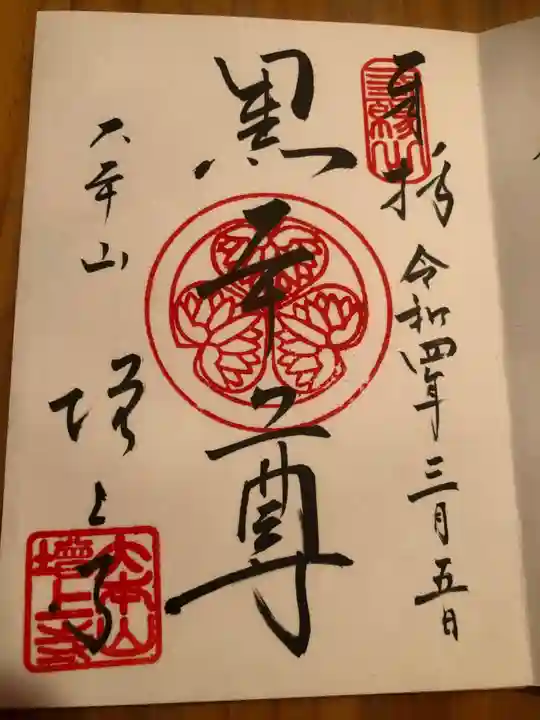 奉拝 令和四年三月五日
三縁山
黒本尊
大本山 増上寺
大本山増上寺